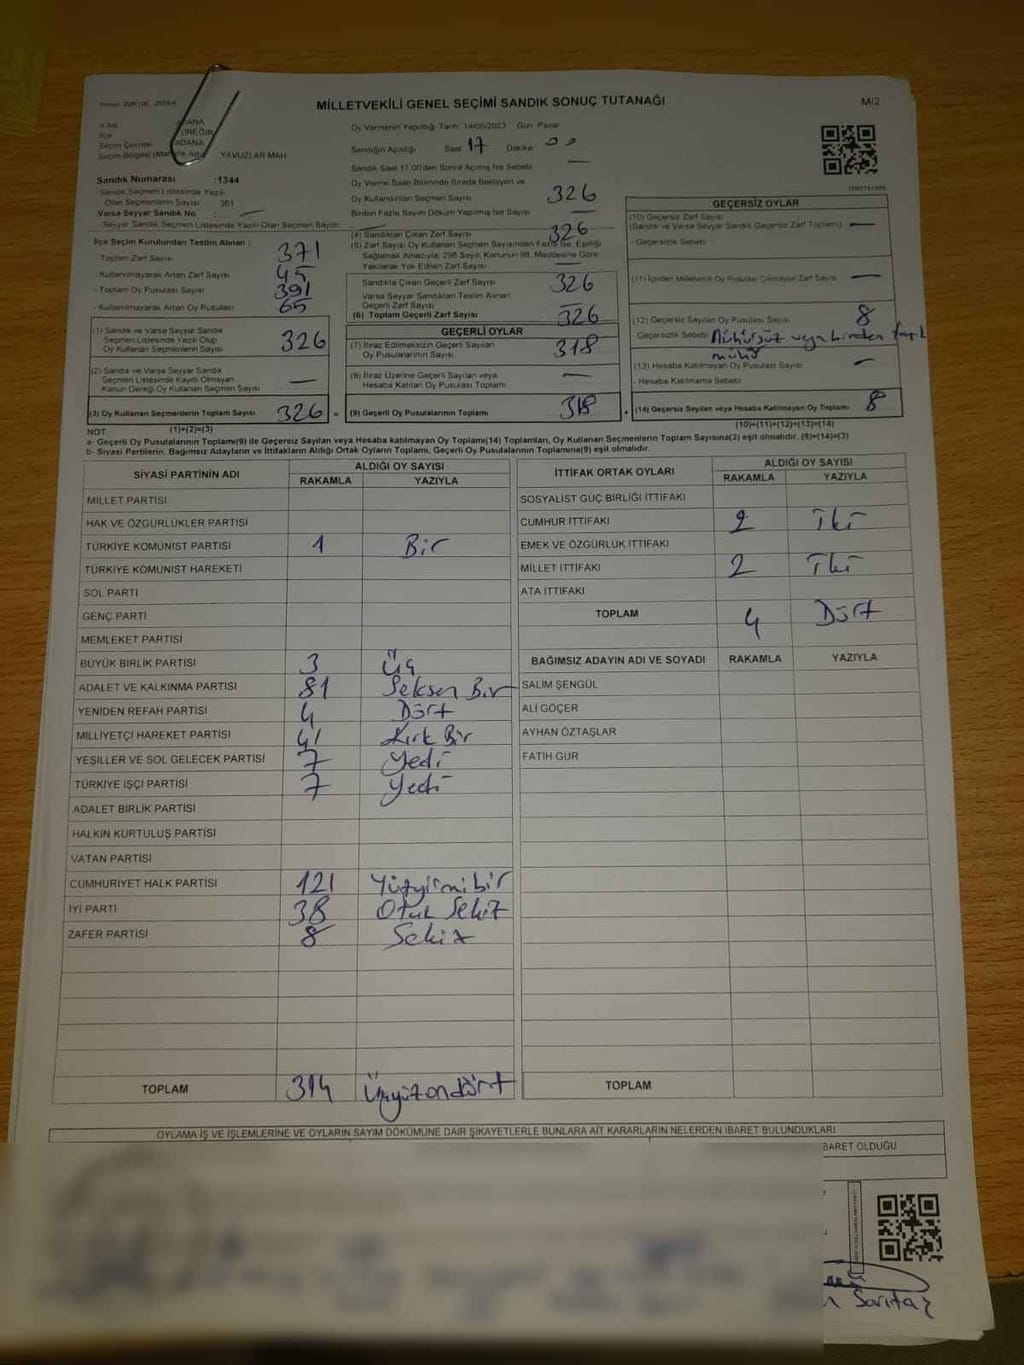 MİLLETVEKİLİ GENEL SEÇİMİ SANDIK SONUÇ TUTANAĞI
M/2
İl Adı ADANA
İlçe ÜREĞİR
Seçim Çevresi ADANA
Seçim Bölgesi YAVUZLAR MAH
Sandık Numarası :1344
Sandık Seçmen Listesinde Yazılı
Olan Seçmenlerin Sayısı 361
Varsa Seyyar Sandık No —
Seyyar Sandık Seçmen Listesinde Yazılı Olan Seçmen Sayısı
İlçe Seçim Kurulundan Teslim Alınan :
Toplam Zarf Sayısı 371
- Kullanılmayarak Artan Zarf Sayısı 45
- Toplam Oy Pusulası Sayısı 391
- Kullanılmayarak Artan Oy Pusulası 65
(1) Sandık ve Varsa Seyyar Sandık
Seçmen Listesinde Yazılı Olup
Oy Kullanan Seçmenlerin Sayısı 326
(2) Sandık ve Varsa Seyyar Sandık
Seçmen Listesinde Kayıtlı Olmayan
Kanun Gereği Oy Kullanan Seçmen Sayısı —
(3) Oy Kullanan Seçmenlerin Toplam Sayısı 326 =
(1)+(2)=(3)
Oy Vermenin Yapıldığı Tarih :14/05/2023 Gün: Pazar
Sandığın Açıldığı Saat 17 Dakika 00
Sandık Saat 17:00'den Sonra Açılmış İse Sebebi —
Oy Verme Saati Bitiminde Sırada Bekleyen ve
Oy Kullandırılan Seçmen Sayısı 326
Birden Fazla Sayım Döküm Yapılmış İse Sayısı —
(4) Sandıktan Çıkan Zarf Sayısı 326
(5) Zarf Sayısı Oy Kullanan Seçmen Sayısından Fazla İse, Eşitliği
Sağlamak Amacıyla, 298 Sayılı Kanunun 98. Maddesine Göre
Yakılarak Yok Edilen Zarf Sayısı —
Sandıkta Çıkan Geçerli Zarf Sayısı 326
Varsa Seyyar Sandıktan Teslim Alınan
Geçerli Zarf Sayısı —
(6) Toplam Geçerli Zarf Sayısı 326
GEÇERLİ OYLAR
(7) İtiraz Edilmeksizin Geçerli Sayılan
Oy Pusulalarının Sayısı 318
(8) İtiraz Üzerine Geçerli Sayılan veya
Hesaba Katılan Oy Pusulası Toplamı —
(9) Geçerli Oy Pusulalarının Toplamı 318
GEÇERSİZ OYLAR
(10) Geçersiz Zarf Sayısı
(Sandık ve Varsa Seyyar Sandık Geçersiz Zarf Toplamı) —
- Geçersizlik Sebebi
(11) İçinden Milletvekili Oy Pusulası Çıkmayan Zarf Sayısı —
(12) Geçersiz Sayılan Oy Pusulası Sayısı 8
Geçersizlik Sebebi Mühürsüz veya birden fazla
mühür
(13) Hesaba Katılmayan Oy Pusulası Sayısı —
- Hesaba Katılmama Sebebi
(14) Geçersiz Sayılan veya Hesaba Katılmayan Oy Toplamı 8
(10)+(11)+(12)+(13)=(14)
NOT
a- Geçerli Oy Pusulalarının Toplamı(9) ile Geçersiz Sayılan veya Hesaba katılmayan Oy Toplamı(14) Toplamları, Oy Kullanan Seçmenlerin Toplam Sayısına(3) eşit olmalıdır. (9)+(14)=(3)
b- Siyasi Partilerin, Bağımsız Adayların ve İttifakların Aldığı Ortak Oyların Toplamı, Geçerli Oy Pusulalarının Toplamına(9) eşit olmalıdır.
SİYASİ PARTİNİN ADI ALDIĞI OY SAYISI
RAKAMLA YAZIYLA
MİLLET PARTİSİ
HAK VE ÖZGÜRLÜKLER PARTİSİ
TÜRKİYE KOMÜNİST PARTİSİ 1 Bir
TÜRKİYE KOMÜNİST HAREKETİ
SOL PARTİ
GENÇ PARTİ
MEMLEKET PARTİSİ
BÜYÜK BİRLİK PARTİSİ 3 Üç
ADALET VE KALKINMA PARTİSİ 81 Seksen Bir
YENİDEN REFAH PARTİSİ 4 Dört
MİLLİYETÇİ HAREKET PARTİSİ 41 Kırk Bir
YEŞİLLER VE SOL GELECEK PARTİSİ 7 Yedi
TÜRKİYE İŞÇİ PARTİSİ 7 Yedi
ADALET BİRLİK PARTİSİ
HALKIN KURTULUŞ PARTİSİ
VATAN PARTİSİ
CUMHURİYET HALK PARTİSİ 121 Yüzyirmibir
İYİ PARTİ 38 Otuz Sekiz
ZAFER PARTİSİ 8 Sekiz
TOPLAM 314 Üçyüzondört
İTTİFAK ORTAK OYLARI ALDIĞI OY SAYISI
RAKAMLA YAZIYLA
SOSYALİST GÜÇ BİRLİĞİ İTTİFAKI
CUMHUR İTTİFAKI 2 İki
EMEK VE ÖZGÜRLÜK İTTİFAKI
MİLLET İTTİFAKI 2 İki
ATA İTTİFAKI
TOPLAM 4 Dört
BAĞIMSIZ ADAYIN ADI VE SOYADI RAKAMLA YAZIYLA
SALİM ŞENGÜL
ALİ GÖÇER
AYHAN ÖZTAŞLAR
FATİH GÜR
TOPLAM
OYLAMA İŞ VE İŞLEMLERİNE VE OYLARIN SAYIM DÖKÜMÜNE DAİR ŞİKAYETLERLE BUNLARA AİT KARARLARIN NELERDEN İBARET BULUNDUKLARI
BARET OLDUĞU